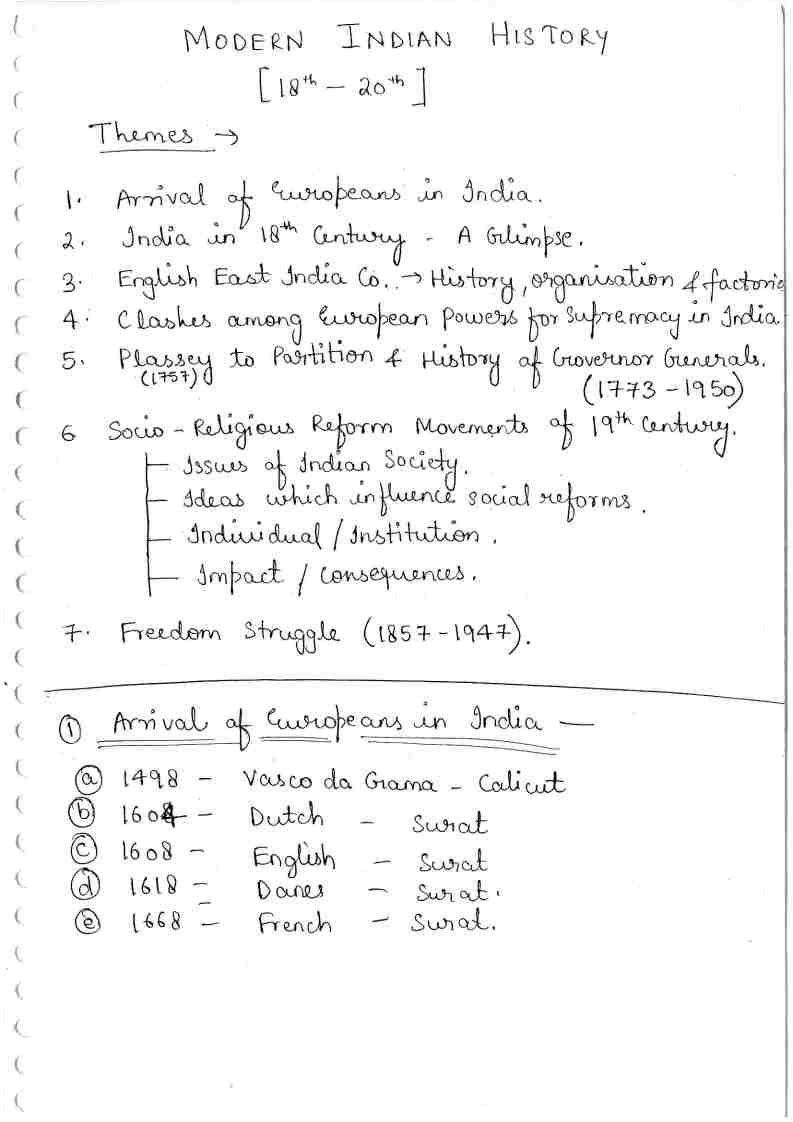 MODERN INDIAN HISTORY
[18th - 20th]
Themes →
1. Arrival of Europeans in India.
2. India in 18th Century - A Glimpse.
3. English East India Co. → History, organisation & factorie
4. Clashes among European Powers for Supremacy in India
5. Plassey to Partition & History of Governor Generals.
(1757) (1773 - 1950)
6 Socio - Religious Reform Movements of 19th Century.
Issues of Indian Society.
Ideas which influence social reforms.
Individual / Institution.
Impact / Consequences.
7. Freedom Struggle (1857 - 1947).
① Arrival of Europeans in India —
ⓐ 1498 - Vasco da Grama - Calicut
ⓑ 1604 - Dutch - Surat
ⓒ 1608 - English - Surat
ⓓ 1618 - Danes - Surat.
ⓔ 1668 - French - Surat.